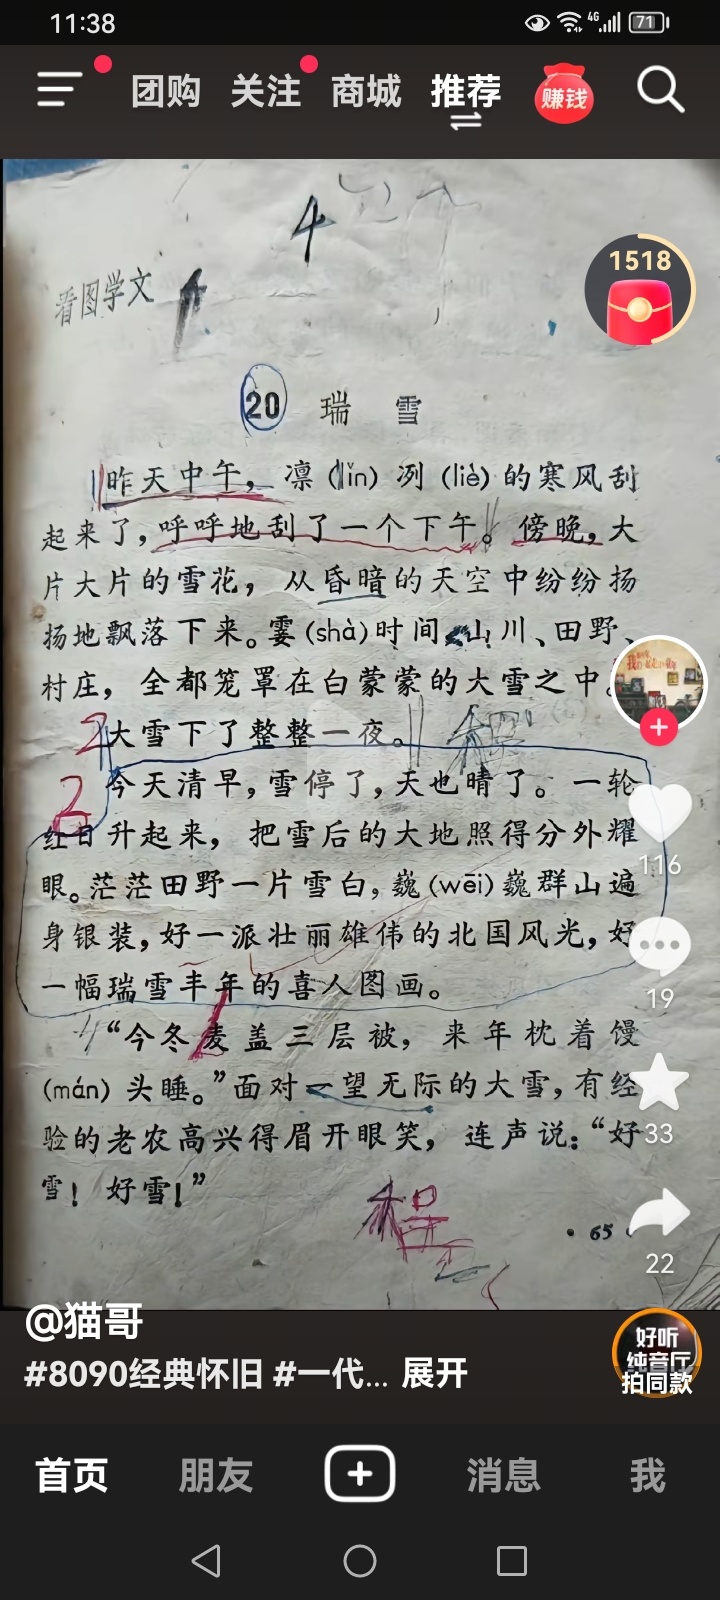 11:38
4G
71
团购 关注 商城 推荐 赚钱
4
看图学文
1518
20 瑞雪
昨天中午，凛(lǐn)冽(liè)的寒风刮
起来了，呼呼地刮了一个下午。傍晚，大
片大片的雪花，从昏暗的天空中纷纷扬
扬地飘落下来。霎(shà)时间，山川、田野、
村庄，全都笼罩在白蒙蒙的大雪之中。
2
大雪下了整整一夜。
2
今天清早，雪停了，天也晴了。一轮
红日升起来，把雪后的大地照得分外耀
眼。茫茫田野一片雪白，巍(wēi)巍群山遍
身银装，好一派壮丽雄伟的北国风光，好
一幅瑞雪丰年的喜人图画。
“今冬麦盖三层被，来年枕着馒
(mán)头睡。”面对一望无际的大雪，有经
验的老农高兴得眉开眼笑，连声说：“好
雪！好雪！”
·65·
116
19
33
22
@猫哥
#8090经典怀旧 #一代... 展开
好听
纯音厅
拍同款
首页 朋友 消息 我